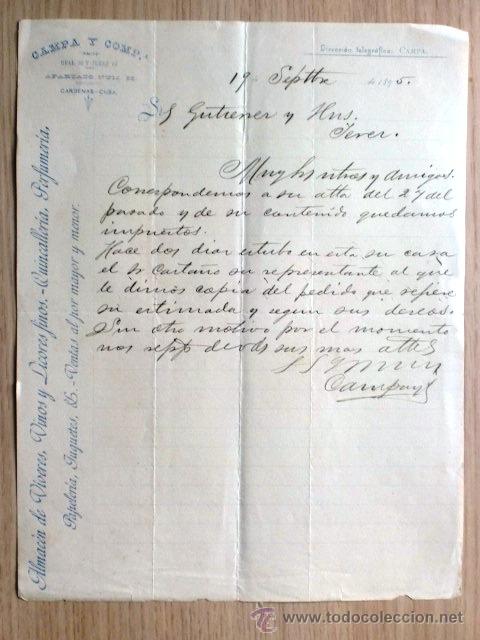 CAMPA Y COMP.
APARTADO NUM.
CARDENAS-CUBA.
Dirección telegráfica: CAMPA.
19 Septbre de 1895.
Gutierrez y Hns.
Jerez.
Muy Srs ntros y amigos.
Correspondemos a su atta del 27 del
pasado y de su contenido quedamos
impuestos.
Hace dos dias estubo en esta su casa
el Sr Caetano su representante al que
le dimos copia del pedido que refiere
su estimada y segun sus deseos.
Sin otro motivo por el momento
nos repts de Vds sus mas atts
Campa y
Almacén de Víveres, Vinos y Licores finos.-Quincallería, Perfumería,
Papelería, Juguetes, &.-Ventas al por mayor y menor.
todocoleccion
www.todocoleccion.net